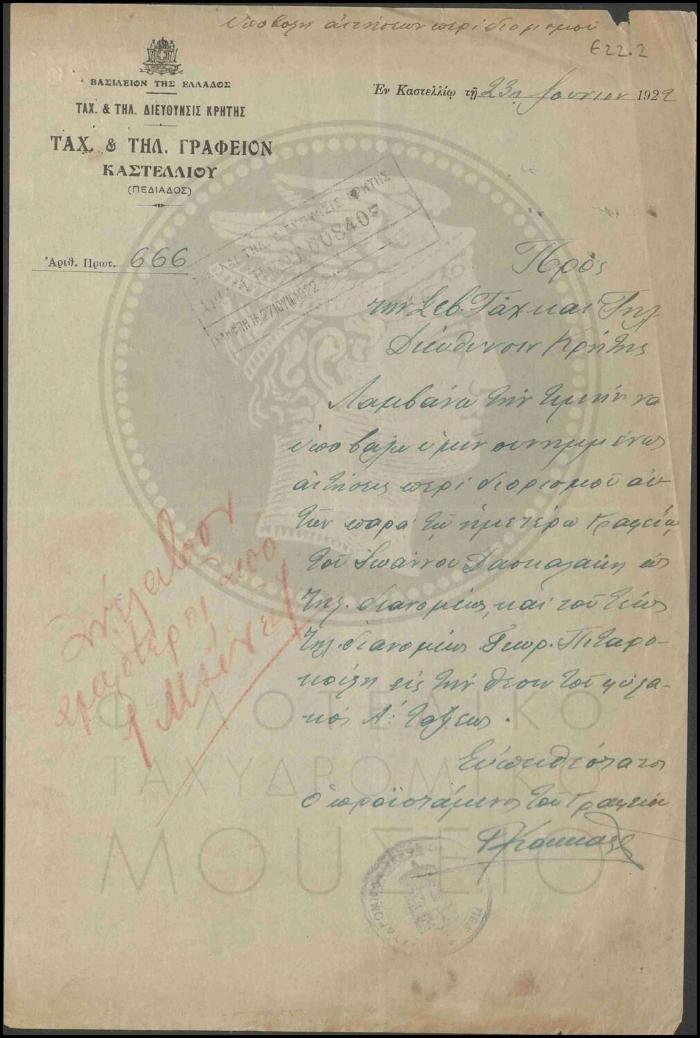 Ὑποβολή αἰτήσεων περί διορισμοῦ
E22.2
ΒΑΣΙΛΕΙΟΝ ΤΗΣ ΕΛΛΑΔΟΣ
ΤΑΧ. & ΤΗΛ. ΔΙΕΥΘΥΝΣΙΣ ΚΡΗΤΗΣ
ΤΑΧ. & ΤΗΛ. ΓΡΑΦΕΙΟΝ
ΚΑΣΤΕΛΛΙΟΥ
(ΠΕΔΙΑΔΟΣ)
Ἐν Καστελλίῳ τῇ 23ῃ Ἰουνίου 1922
Ἀριθ. Πρωτ. 666
ΤΗΛ. ΔΙΕΥΘΥΝΣΙΣ ΚΡΗΤΗΣ
008407
27 ΙΟΥΝ 1922
Πρός
τήν Σεβ. Ταχ καί Τηλ
Διεύθυνσιν Κρήτης
Λαμβάνω τήν τιμήν νά
ὑποβάλω ὑμῖν συνημμένως
αἰτήσεις περί διορισμοῦ αὐ
τῶν παρά τῷ ἡμετέρῳ Γραφείῳ
τοῦ Ἰωάννου Δασκαλάκη ὡς
τηλ. διανομέως, καί τοῦ τέως
τηλ. διανομέως Γεωρ. Πιταρο
κοίλη εἰς τήν θέσιν τοῦ φύλα
κος Α΄ Τάξεως.
Εὐπειθέστατος
Ὁ προϊστάμενος τοῦ Γραφείου
ΦΙΛΟΤΕΛΙΚΟ
ΤΑΧΥΔΡΟΜΙΚΟ
ΜΟΥΣΕΙΟ